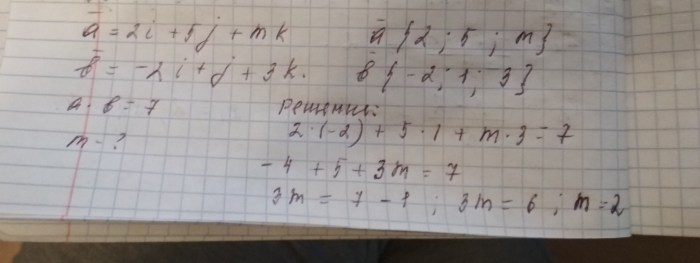 a̅ = 2i + 5j + mk a̅ {2 ; 5 ; m}
b̅ = -2i + j + 3k. b̅ {-2; 1; 3}
a · b = 7 Решение:
m - ? 2·(-2) + 5·1 + m·3 = 7
-4 + 5 + 3m = 7
3m = 7 - 1 ; 3m = 6 ; m = 2